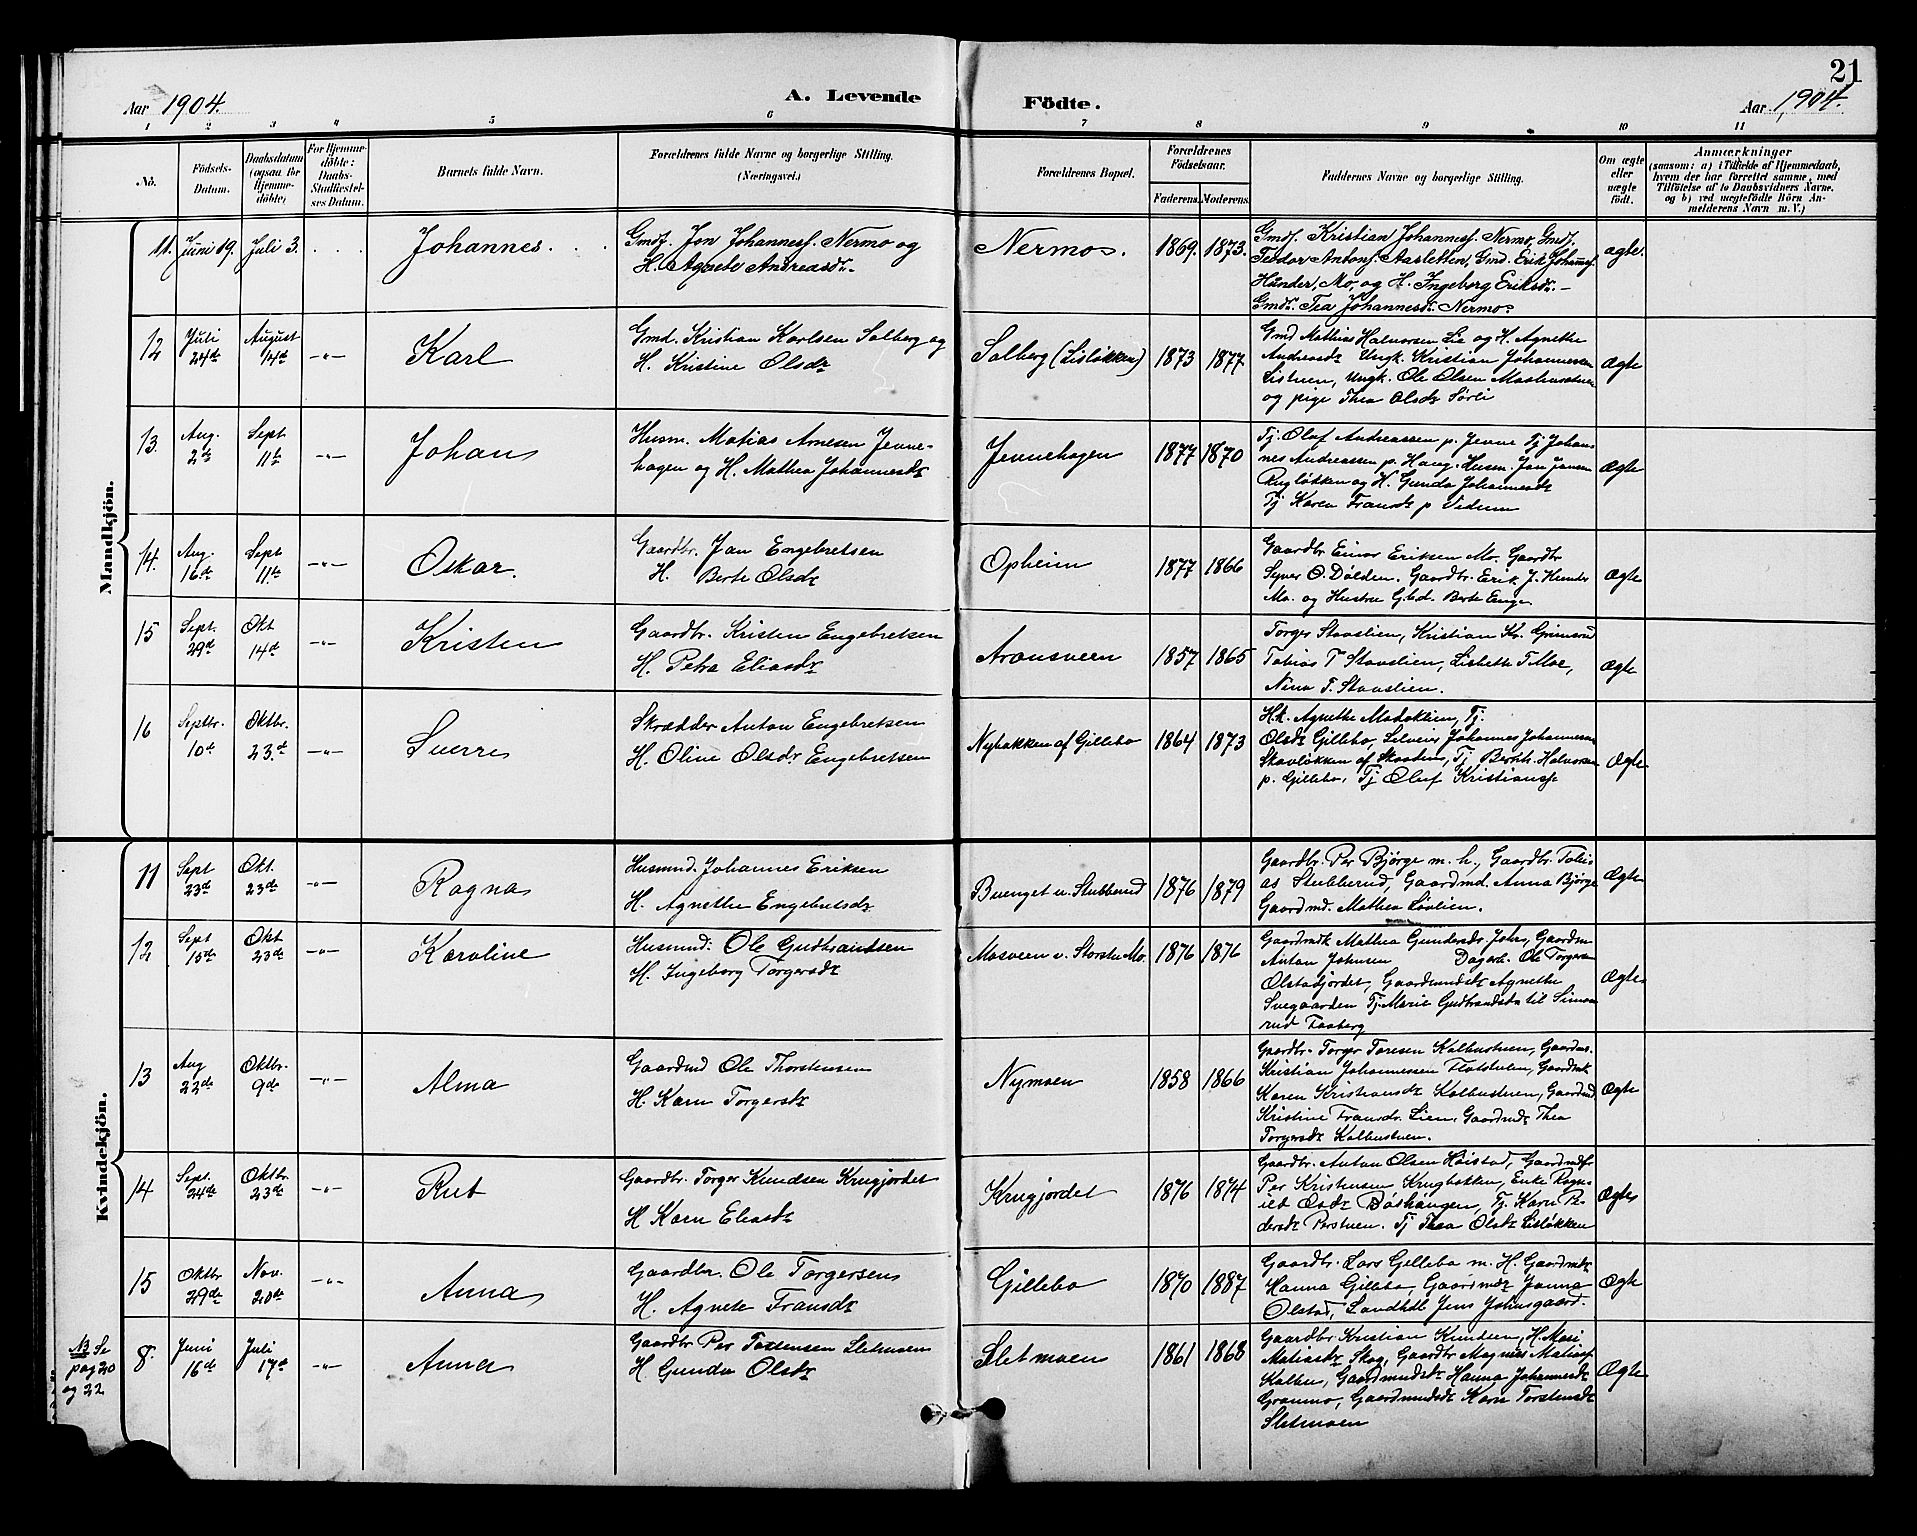 21
Aar 1904. A. Levende Födte. Aar 1904.
1 2 3 4 5 6 7 8 9 10 11
No.
Födsels-
Datum.
Daabsdatum
(ogsaa for
Hjemme-
döbte)
For Hjemme-
döbte:
Daabs-
Stadfæstel-
ses Datum.
Barnets fulde Navn.
Forældrenes fulde Navne og borgerlige Stilling.
(Næringsvei.)
Forældrenes Bopæl.
Forældrenes
Födselsaar.
Faderens. Moderens.
Faddernes Navne og borgerlige Stilling.
Om ægte
eller
uægte
födt.
Anmærkninger
(saasom: a) i Tilfælde af Hjemmedaab,
hvem der har forrettet samme, med
Tilföielse af to Daabsvidners Navne.
og b) ved uægtefödte Börn An-
melderens Navn m. V.)
Mandkjön.
11. Juni 19. Juli 3. Johannes.
Gmdf. Jon Johannesf. Nermo og
H. Agnete Andreasdr.
Nermo. 1869. 1873.
Gmdf. Kristian Johannesf. Nermo, Gmdf.
Teodor Antonf. Aasletten, Gmd. Erik Johannesf.
Hunder, Mo, og H. Ingeborg Eriksdr.
Gmdr. Tea Johannesdr. Nermo.
ægte.
12 Juli 24de August 14de -"- Karl
Gmd. Kristian Karlsen Solberg og
H. Kristine Olsdr
Solberg (Lisløkken) 1873 1877.
Gmd Mathias Halvorsen Lie og H. Agnethe
Andreasdr Ungk. Kristian Johannesen
Listuen, Ungk. Ole Olsen
og pige Thea Olsdr Sørli
Ægte
13. Aug. 2de Sept 11te -"- Johan
Husm. Matias Arnesen Jevne-
hagen og H. Mathea Johannesdr
Jevnehagen 1877 1870
Tj. Oluf Andreassen p. Jevne Tj Johan-
nes Andreassen p. Haug. Husm. Jan Jansen
Rugløkken og H. Gunda Johannesdr
Tj Karen Fransdr p Vedum
Ægte
14. Aug. 16de Sept 11te -"- Oskar.
Gaardbr. Jan Engebretsen
H. Berte Olsdr
Opheim 1877 1866
Gaardbr Einar Eriksen Mo. Gaardbr
Syver O. Dølden. Gaardbr. Erik J. Hunder
Mo. og Hustru Gbd. Berte Enge
Ægte
15 Sept. 29de Okt 14de -"- Kristen
Gaardbr. Kristen Engebretsen
H. Petra Eliasdr
Aronsveen 1857 1865
Torger Stavslien, Kristian Kr. Grimsrud
Tobias T Stavslien, Lisbeth T Moe,
Nina T. Stavslien.
Ægte
16 Septbr. 10de Oktbr. 23.de -"- Sverre
Skrædder Anton Engebretsen
H. Oline Olsdr Engebretsen
Nybakken af Gillebo 1864 1873
Agnethe Tj.
Olsdr Gillebo, Selveier Johannes Johannesen
Stavløkken af Tj Bernh. Halvorsen
p. Gillebo, Tj Oluf Kristiansf.
Ægte
Kvindekjön.
11 Sept 23de Okt. 23de -"- Ragna
Husmd. Johannes Eriksen
H. Agnethe Engebretsdr
Buenget u. Stubberud 1876 1879
Gaardbr. Per Bjørge m. h., Gaardbr. Tobi-
as Stubberud, Gaardmd. Anna Bjørge
Gaardmd. Mathea Løvlien.
Ægte
12 Sept 15de Okt 23de -"- Karoline
Husmd: Ole Gudbrandsen
H. Ingeborg Torgersdr
Mosveen u. Storste Mo. 1876 1876
Gaardmdr Mathea Gundersdr. Gaardm
Anton Johnsen Dagarb. Ole Torgersen
Olstadjordet, Gaardmandsdr Agnethe
Svegaarden Tj. Marie Gudbrandsdr til Simen
rud Faaberg
Ægte
13 Aug 22de Oktbr. 9de -"- Alma
Gaardmd Ole Thorstensen
H. Karn Torgersdr
Nymoen 1858 1866
Gaardbr. Torger Toresen Kalhustuen, Gaardm.
Kristian Johannessen Flatstulen, Gaardmdr
Karen Kristiansdr Kalhustuen, Gaardmd
Kristine Fransdr. Lien, Gaardmdr Thea
Torgersdr Kalhustuen.
Ægte
14 Sept. 24de Oktbr. 23de -"- Rut
Gaardbr. Torger Knudsen Krugjordet
H Karn Eliasdr
Krugjordet 1876 1874
Gaardbr. Anton Olsen Høistad, Gaardmdf
Per Kristensen Krugbakken, Enke Ragn-
ild Olsdr Tj. Karn P-
dersdr Perstuen. Tj Thea Olsdr Lisløkken
Ægte
15 Oktbr 29de Nov. 20de -"- Anna
Gaardbr. Ole Torgersen
H. Agnete Fransdr
Gillebo 1870 1887
Gaardbr. Lars Gillebo m. H. Gaardmdr
Hanna Gillebo, Gaardmdr Janna
Olstad, Landhdl Jens Johnsgaard.
Ægte
NB Se
pag 20
og 22
8. Juni 16de Juli 17de -"- Anna
Gaardbr Per Tostensen Sletmoen
H Gunda Olsdr
Sletmoen 1861 1868
Gaardbr Kristian Knudsen, H. Mari
Matiasdr Skog, Gaardbr Magnus Matiasf
Kalhu, Gaardmandsdr Hanna Johannesdr
Granmo, Gaardmandsdr Karn Torstensdr
Sletmoen
Ægte